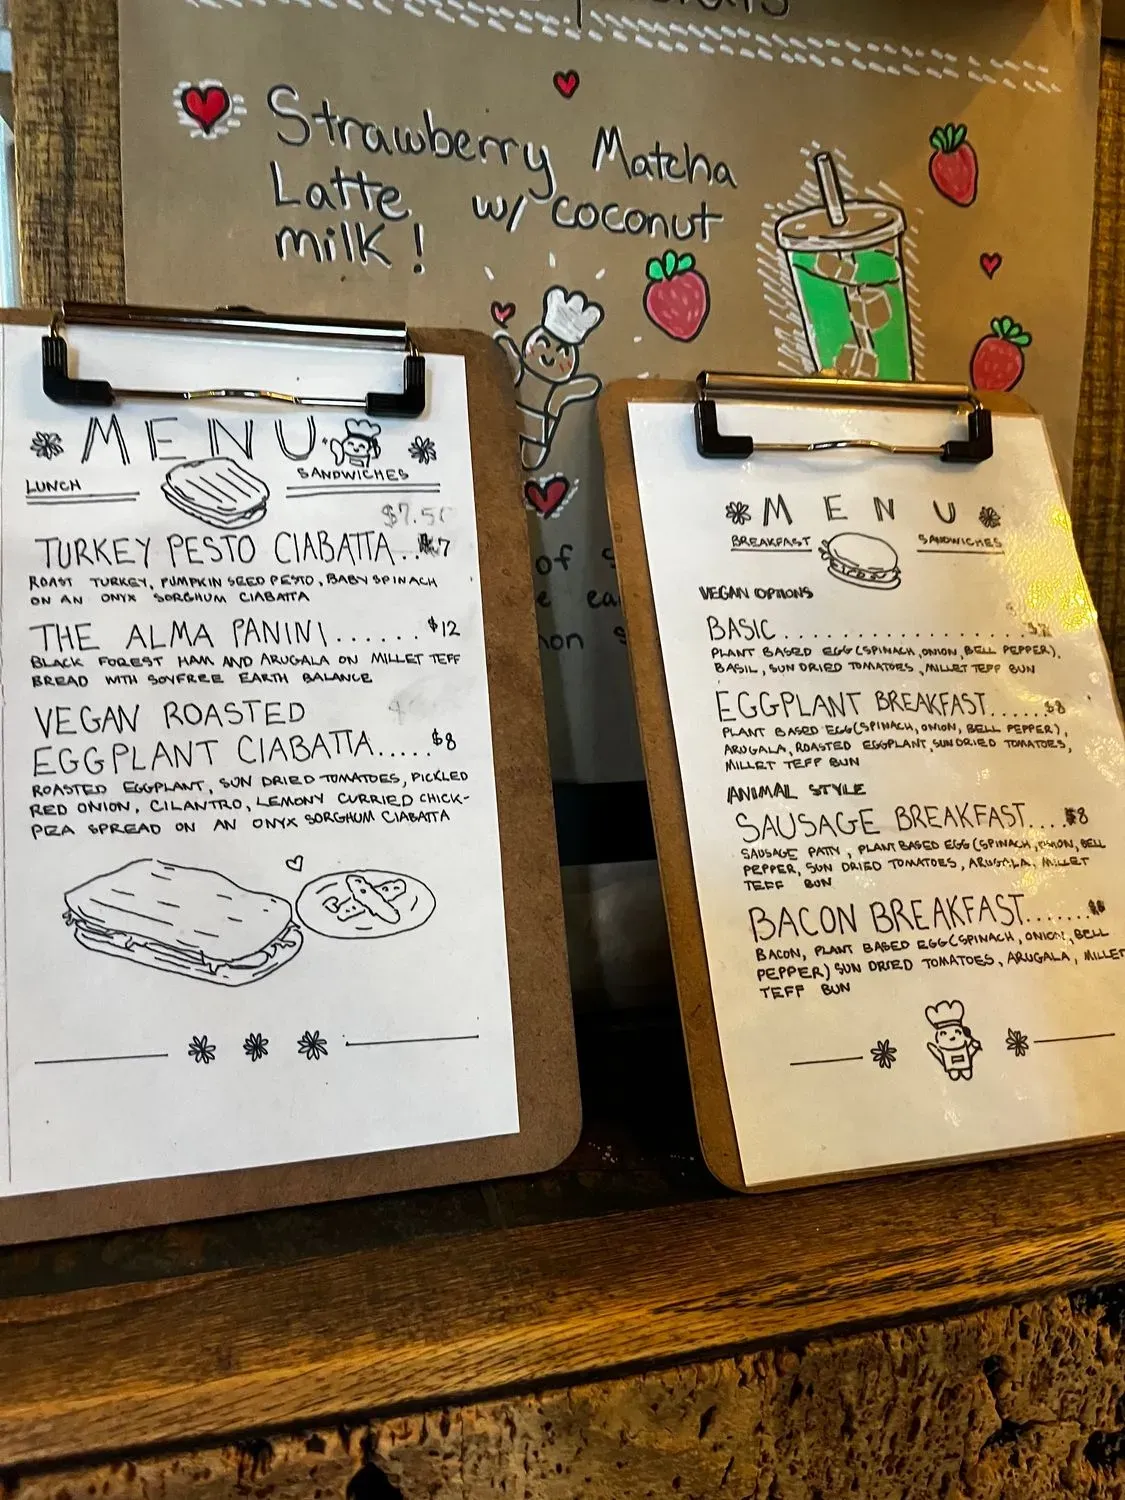 Strawberry Matcha
Latte w/ coconut
milk!
of
MENU
LUNCH
SANDWICHES
TURKEY PESTO CIABATTA..$7
ROAST TURKEY, PUMPKIN SEED PESTO, BABY SPINACH
ON AN ONYX SORGHUM CIABATTA
THE ALMA PANINI......$12
BLACK FOREST HAM AND ARUGALA ON MILLET TEFF
BREAD WITH SOYFREE EARTH BALANCE
VEGAN ROASTED
EGGPLANT CIABATTA.....$8
ROASTED EGGPLANT, SUN DRIED TOMATOES, PICKLED
RED ONION, CILANTRO, LEMONY CURRIED CHICK-
PEA SPREAD ON AN ONYX SORGHUM CIABATTA
MENU
BREAKFAST
SANDWICHES
VEGAN OPTIONS
BASIC...................
PLANT BASED EGG (SPINACH, ONION, BELL PEPPER),
BASIL, SUN DRIED TOMATOES, MILLET TEFF BUN
EGGPLANT BREAKFAST......$8
PLANT BASED EGG (SPINACH, ONION, BELL PEPPER),
ARUGALA, ROASTED EGGPLANT, SUN DRIED TOMATOES,
MILLET TEFF BUN
ANIMAL STYLE
SAUSAGE BREAKFAST....$8
SAUSAGE PATTY, PLANT BASED EGG (SPINACH, ONION, BELL
PEPPER, SUN DRIED TOMATOES, ARUGALA, MILLET
TEFF BUN
BACON BREAKFAST.......
BACON, PLANT BASED EGG (SPINACH, ONION, BELL
PEPPER) SUN DRIED TOMATOES, ARUGALA, MILLET
TEFF BUN